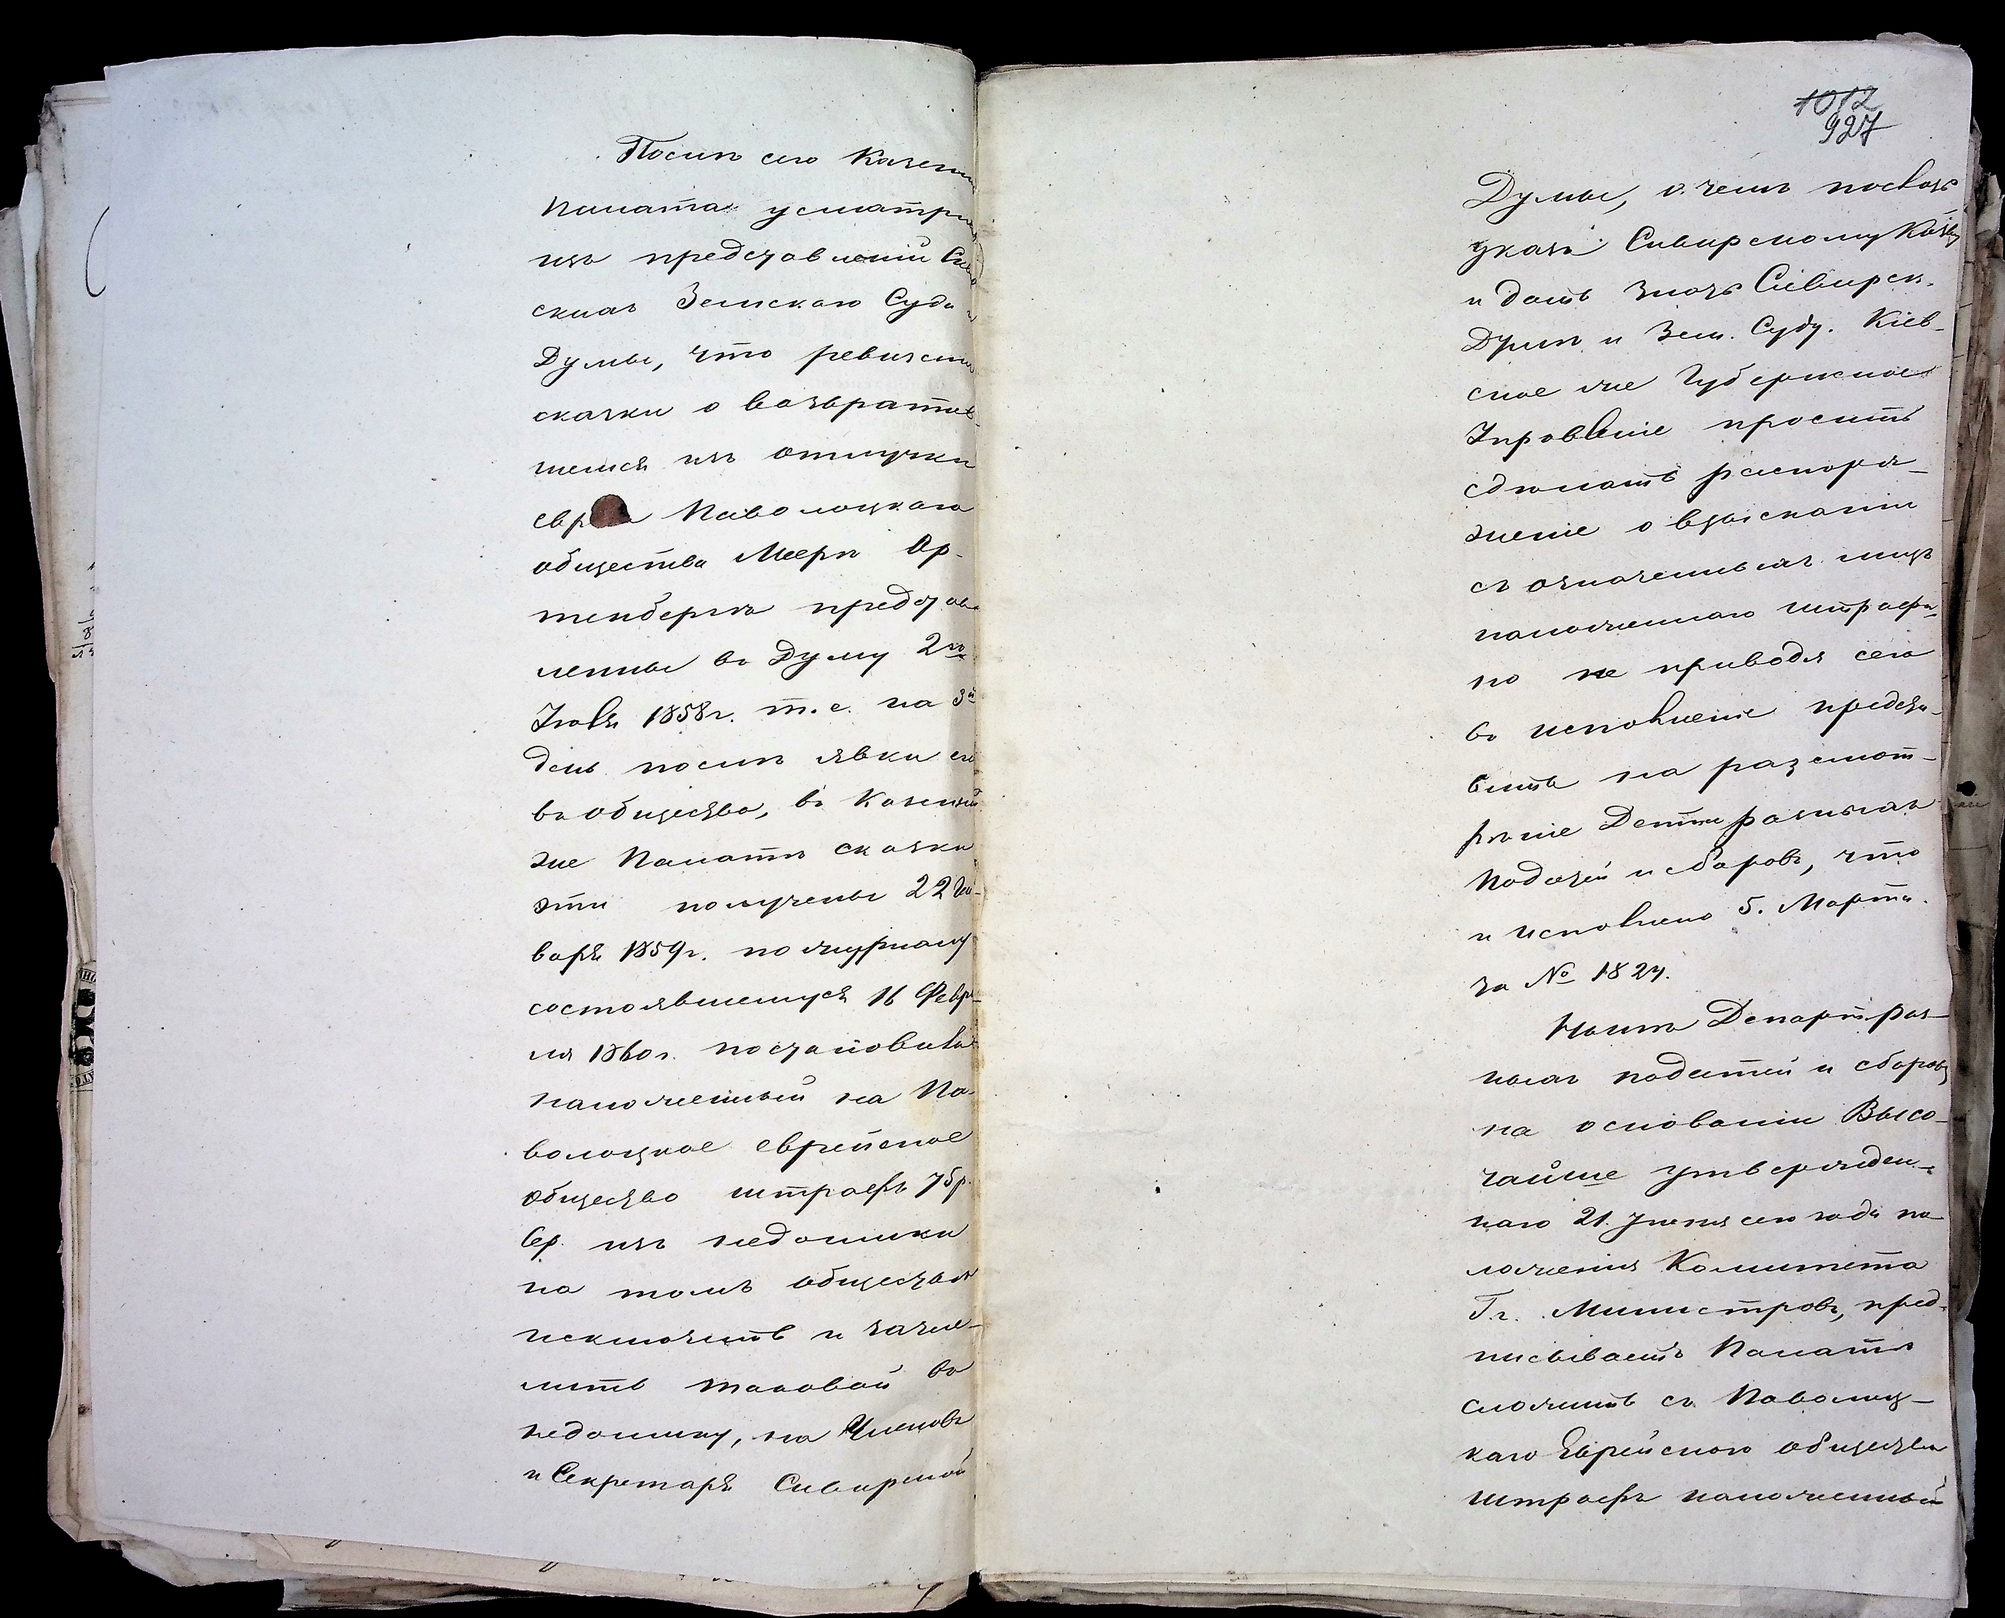 Послѣ сего Казенн
Палата усматрив
изъ представленій Скв
скихъ Земскаго Суда и
Думы, что ревизскія
сказки о возвратив-
шемся изъ отлучки
евр Паволоцкаго
общества Меерѣ Ор-
тенбергѣ представ
лены въ Думу 2го
Іюля 1858г. т.е. на 3й
день послѣ явки его
въ общество, въ Казенной
же Палатѣ сказки
эти получены 22 Ян-
варя 1859г. по журналу
состоявшемуся 16 Февра-
ля 1860г. постановила
наложенный на Па-
волоцкое еврейское
общество штрафъ 75р.
Сер. изъ недоимки
на томъ обществѣ
исключить и зачис-
лить таковой въ
недоимку, на Членовъ
и Секретаря Сквирской
1012
927
Думы, о чемъ послать
указъ Сквирскому Казн
и дать знать Сквирск.
Думѣ и Зем. Суду. Кіев-
ское же Губернское
Правленіе просить
сдѣлать распоря-
женіе о взысканіи
съ означенныхъ лицъ
наложеннаго штрафа,
но не приводя сего
въ исполненіе предста-
вить на разсмот-
рѣніе Детта разныхъ
податей и сборовъ, что
и исполнено 5. Марта.
за № 1824.
Нынѣ Департ. раз-
ныхъ податей и сборовъ
на основаніи Высо-
чайше утвержден-
наго 21. Іюня сего года по-
ложенія Комитета
Гг. Министровъ, пред-
писываетъ Палатѣ
сложить съ Паволоц-
каго Еврейского общества
штрафъ наложенный